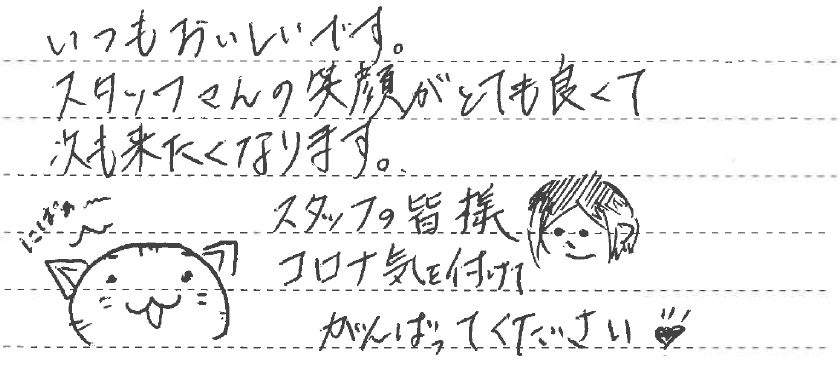 いつもおいしいです。
スタッフさんの笑顔がとても良くて
次も来たくなります。
スタッフの皆様
コロナ気を付けて
がんばってください
にぱぁ〜